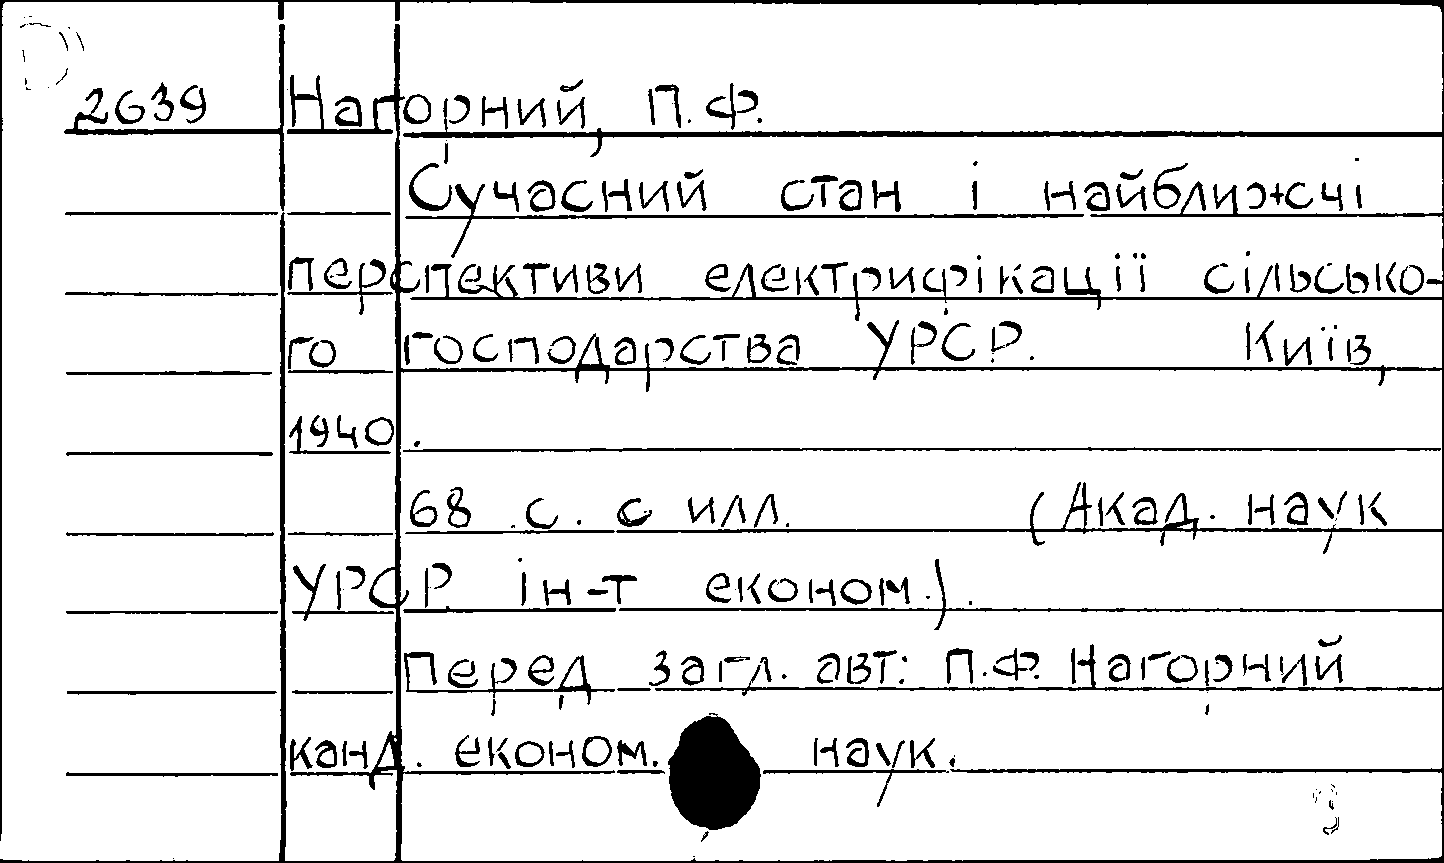 D
2639 Нагорний, П.Ф.
Сучасний стан і найближчі
перспективи електрифікації сільсько-
го господарства УРСР. Київ,
1940.
68 с. с илл. (Акад. наук
УРСР ін-т економ.).
Перед загл. авт: П.Ф. Нагорний
канд. економ. наук.